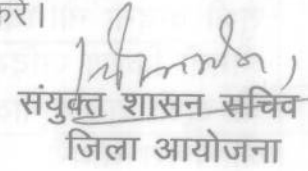 करें।
संयुक्त शासन सचिव
जिला आयोजना